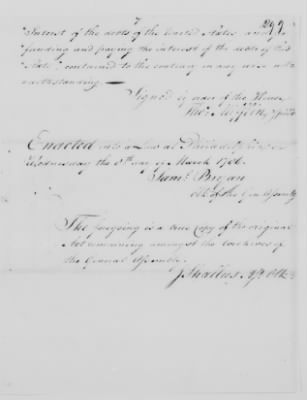 7
299
Interest of the debts of the United States and for
funding and paying the interest of the debts of this
State" contained to the contrary in any wise notwithstanding.—
Signed by order of the House
Thos. Mifflin Speaker
Enacted into a Law at Philadelphia on
Wednesday the 8th day of March 1786.
Saml. Bryan
Clk of the Genl Assembly
The foregoing is a true Copy of the original
Act remaining amongst the Archives of
the General Assembly.
J Shallus Ast. Clk